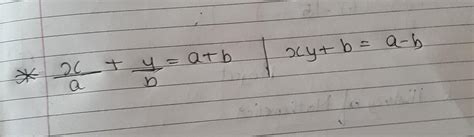 * x/a + y/b = a+b | xy + b = a-b